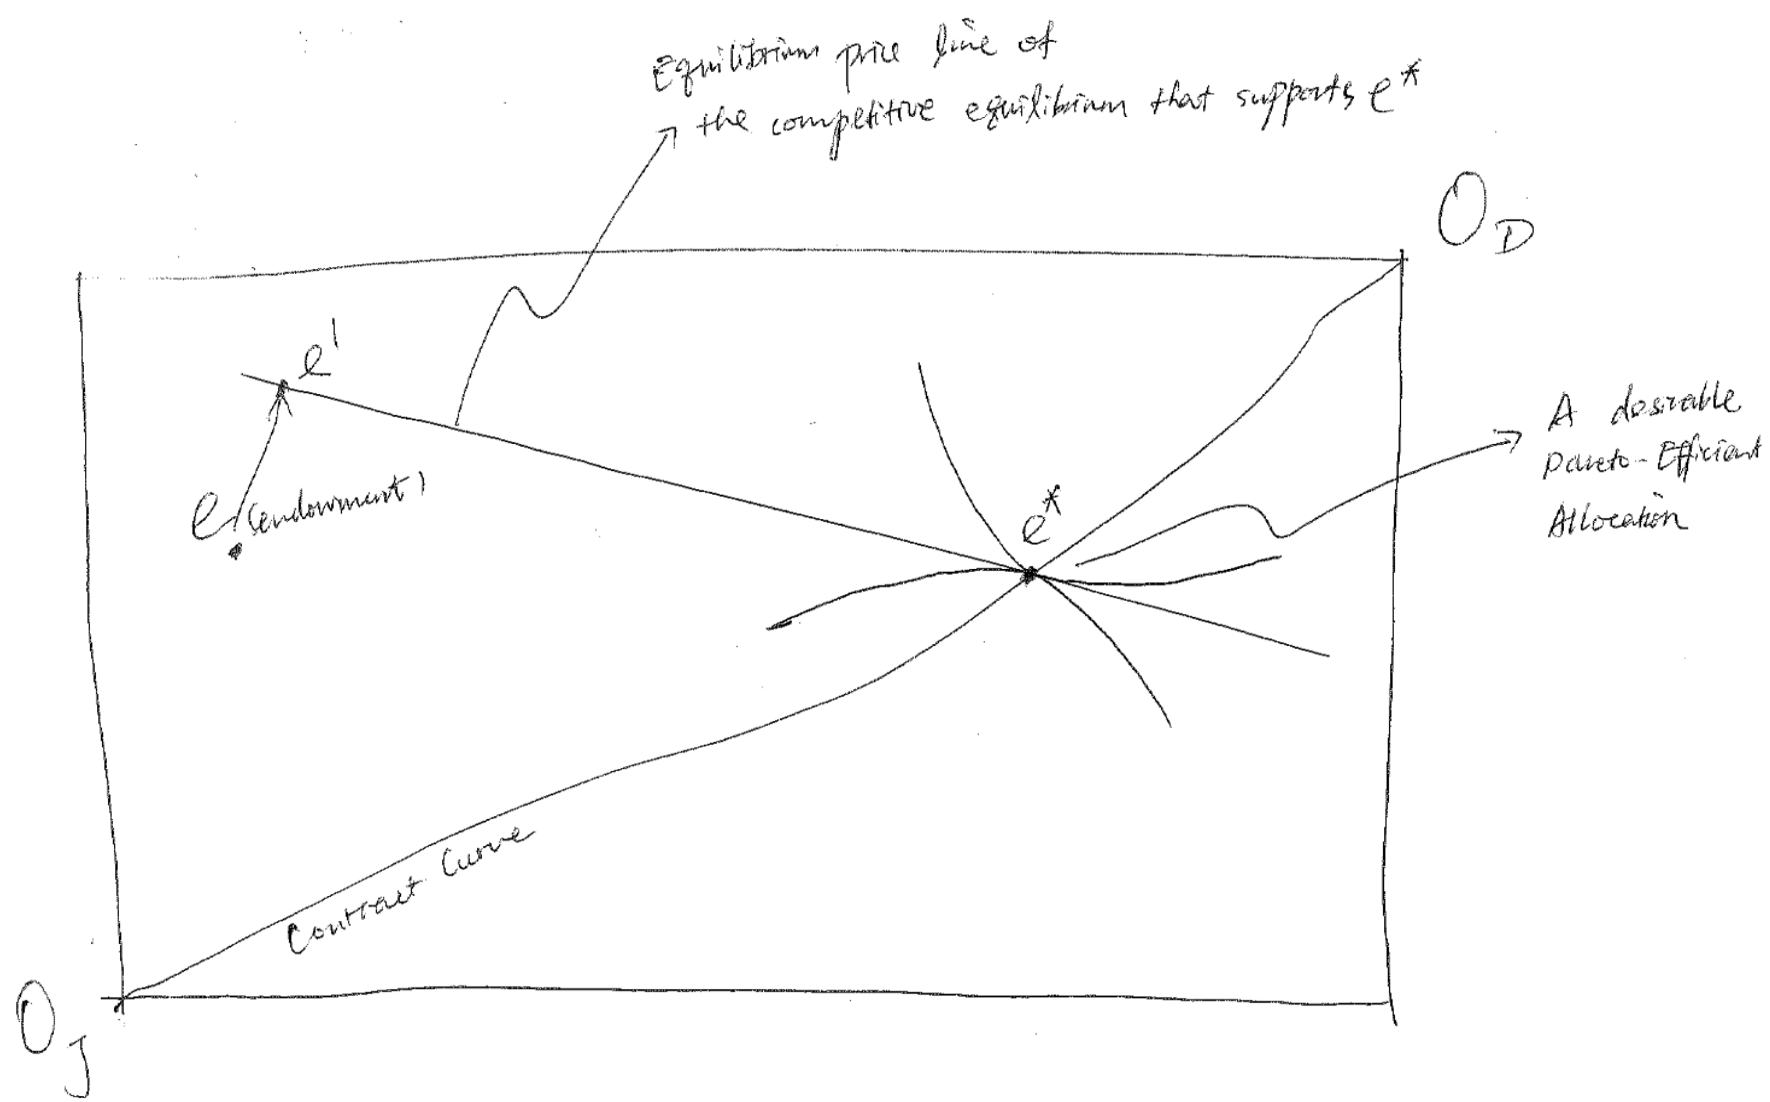 Equilibrium price line of
the competitive equilibrium that supports e*
O_D
e'
e (endowment)
e*
A desirable
Pareto-Efficient
Allocation
Contract Curve
O_J